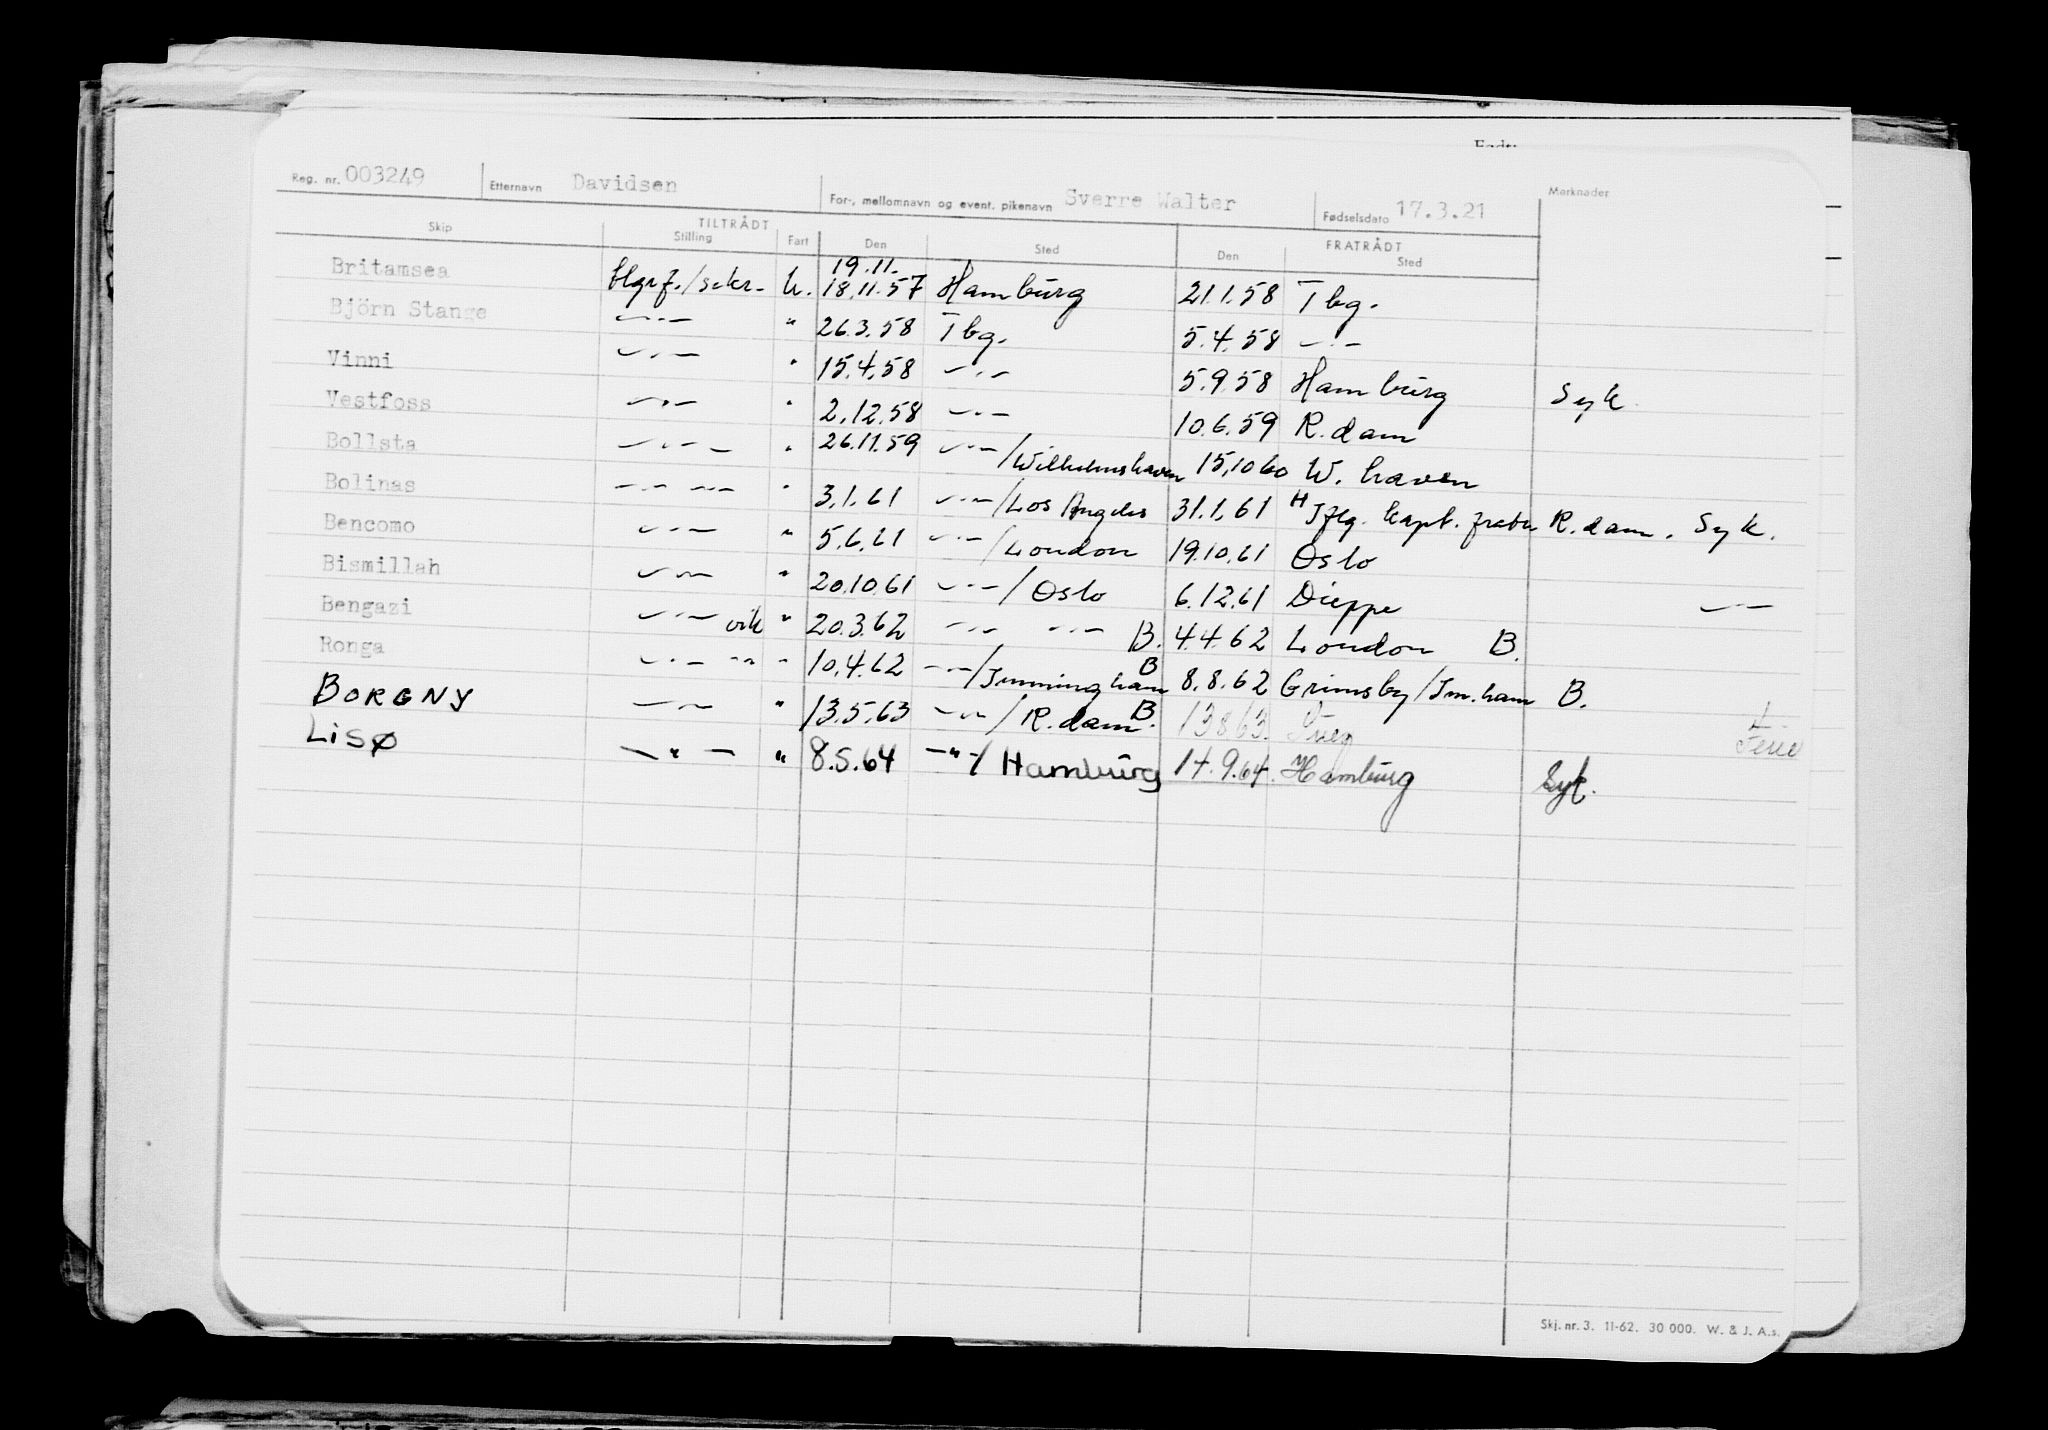 Reg. nr. 003249 Etternavn Davidsen For-, mellomnavn og event. pikenavn Sverre Walter Fødselsdato 17.3.21 Merknader
TILTRÅDT FRATRÅDT
Skip Stilling Fart Den Sted Den Sted
19.11.
Britamsea tlgrf./sekr. U. 18.11.57 Hamburg 21.1.58 Tbg.
Björn Stange —"— " 26.3.58 Tbg. 5.4.58 —"—
Vinni —"— " 15.4.58 —"— 5.9.58 Hamburg Syk
Vestfoss —"— " 2.12.58 —"— 10.6.59 R.dam
Bollsta —"— " 26.11.59 —"—/Wilhelmshaven 15.10.60 W.haven
Bolinas —"— —"— " 3.1.61 —"—/Los Angeles 31.1.61 kapt. R.dam. Syk.
Bencomo —"— " 5.6.61 —"—/London 19.10.61 Oslo
Bismillah —"— " 20.10.61 —"—/Oslo 6.12.61 Dieppe —"—
Bengazi —"— vik " 20.3.62 —"— —"— B. 4.4.62 London B.
Ronga —"— —"— " 10.4.62 —"—/Immingham B 8.8.62 Grimsby/Im.ham B.
BORGNY —"— " 13.5.63 —"—/R.dam B. 13.8.63. Ferie
LISØ —"— " 8.5.64 —"—/Hamburg 14.9.64. Hamburg Syk.
Skj. nr. 3. 11-62. 30 000. W. & J. A.s.